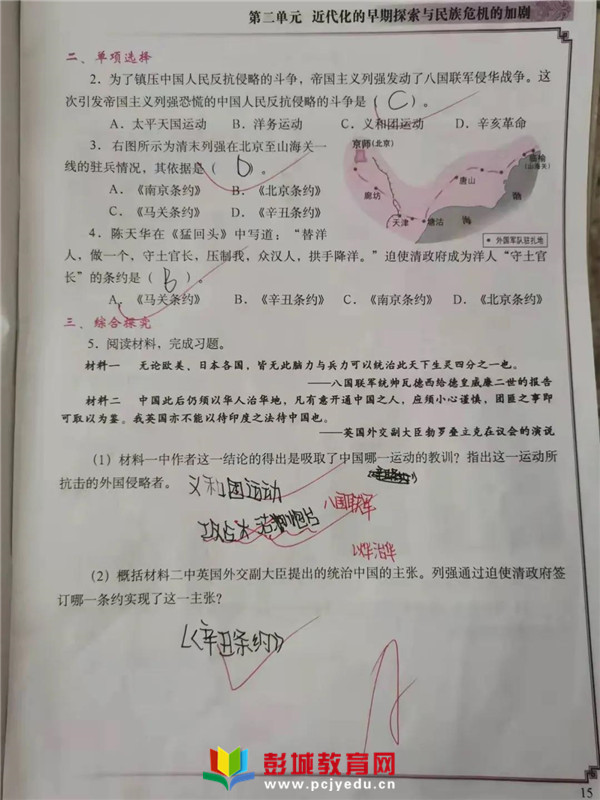 第二单元 近代化的早期探索与民族危机的加剧
二、单项选择
2. 为了镇压中国人民反抗侵略的斗争，帝国主义列强发动了八国联军侵华战争。这
次引发帝国主义列强恐慌的中国人民反抗侵略的斗争是（ C ）。
A. 太平天国运动 B. 洋务运动 C. 义和团运动 D. 辛亥革命
3. 右图所示为清末列强在北京至山海关一
线的驻兵情况，其依据是（ D ）。
A. 《南京条约》 B. 《北京条约》
C. 《马关条约》 D. 《辛丑条约》
京师(北京)
临榆
(山海关)
廊坊
唐山
渤
天津
塘沽
海
外国军队驻扎地
4. 陈天华在《猛回头》中写道：“替洋
人，做一个，守土官长，压制我，众汉人，拱手降洋。”迫使清政府成为洋人“守土官
长”的条约是（ B ）。
A. 《马关条约》 B. 《辛丑条约》 C. 《南京条约》 D. 《北京条约》
三、综合探究
5. 阅读材料，完成习题。
材料一 无论欧美、日本各国，皆无此脑力与兵力可以统治此天下生灵四分之一也。
——八国联军统帅瓦德西给德皇威廉二世的报告
材料二 中国此后仍须以华人治华地，凡有意开通中国之人，应须小心谨慎，团匪之事即
可取以为鉴。我英国亦不能以待印度之法待中国也。
——英国外交副大臣勃罗垒立克在议会的演说
（1）材料一中作者这一结论的得出是吸取了中国哪一运动的教训？指出这一运动所
抗击的外国侵略者。
义和团运动
八国联军
以华治华
（2）概括材料二中英国外交副大臣提出的统治中国的主张。列强通过迫使清政府签
订哪一条约实现了这一主张？
《辛丑条约》
彭城教育网
www.pcjyedu.cn
15